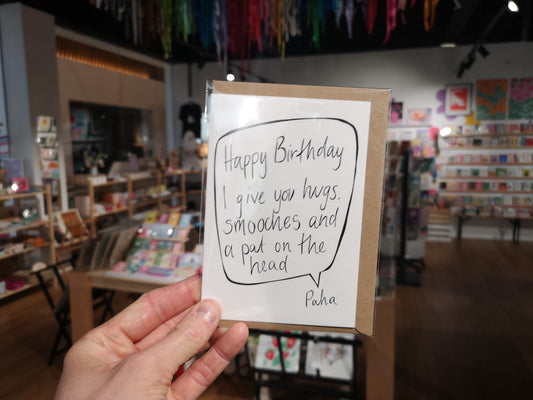 Happy Birthday
I give you hugs,
smooches and
a pat on the
head
Paha